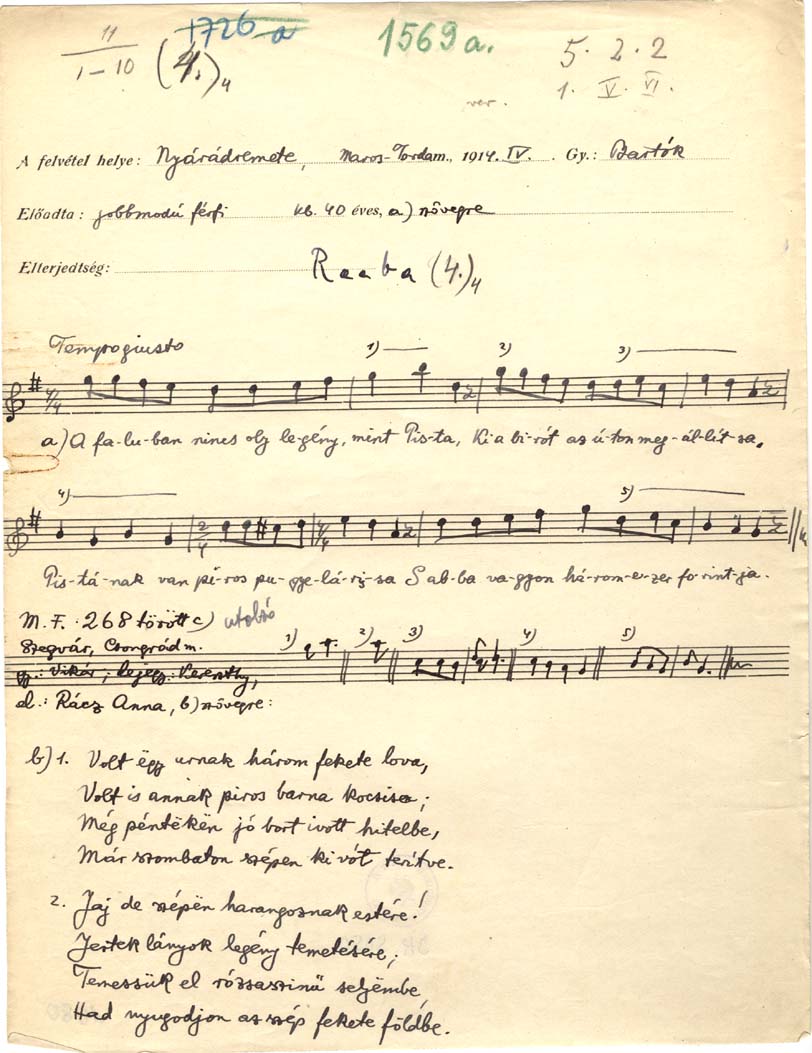 11 1726 a 1569 a. 5. 2. 2
1–10 (4.)₄ 1. V. VI.
ver.
A felvétel helye: Nyárádremete, Maros-Tordam., 1914. IV. Gy.: Bartók
Előadta: jobbmodú férfi kb. 40 éves, a) szövegre
Elterjedtség: (4.)₄
Tempo giusto 1) 2) 3)
4/4
a) A fa-lu-ban nincs oly le-gény, mint Pis-ta, Ki a bi-rót az ú-ton meg-ál-lít-sa.
4) 5)
2/4 4/4
Pis-tá-nak van pi-ros pu-gye-lá-ri-sa S ab-ba va-gyon há-rom-e-zer fo-rint-ja.
M. F. 268 törött c) utolsó
Szegvár, Csongrád m. 1) 2) 3) 4) 5)
gy.: Vikár; lejegy.: Kerenthy,
el.: Rácz Anna, b) szövegre:
b) 1. Volt ëgy urnak három fekete lova,
Volt is annak piros barna kocsisa;
Még péntëkën jó bort ivott hitelbe,
Már szombaton szépen ki vót terítve.
2. Jaj de szépën harangoznak estére!
Jertek lányok legény temetésére;
Temessük el rózsaszinű selyëmbe,
Had nyugodjon az szép fekete földbe.